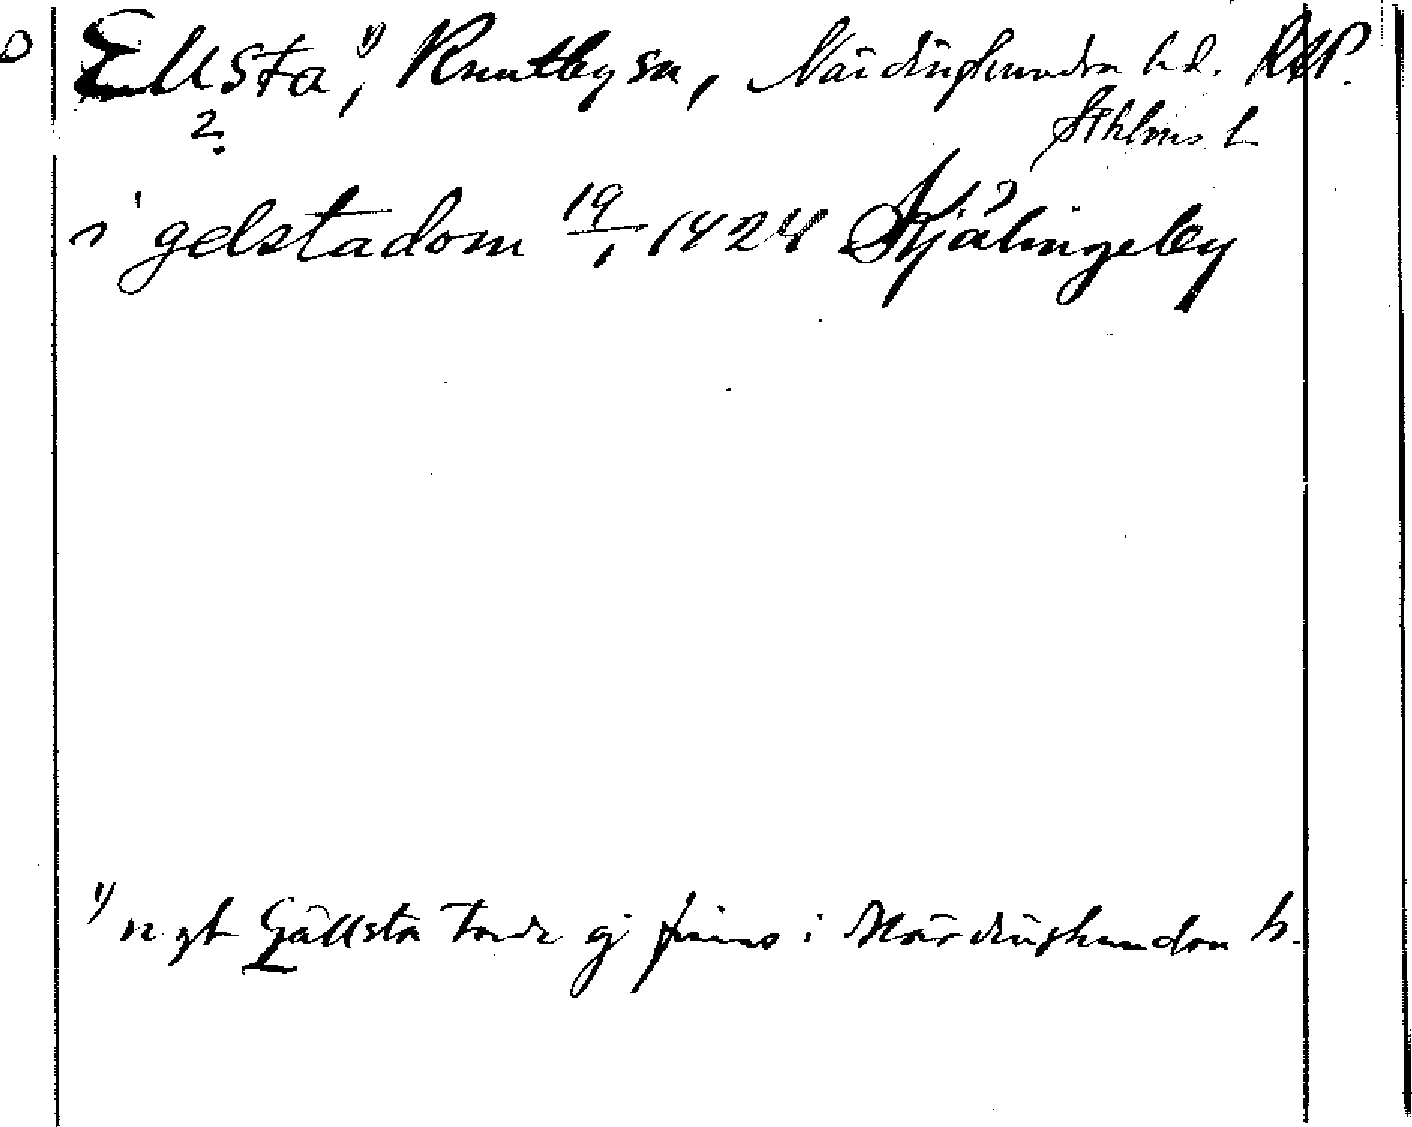 Ellsta ¹⁾, Knutby sn, Närdinghundra hd. RAP.
? Sthlms l.
i gelstadom 19/1 1424 Skjälingeby
¹⁾ ngt Gällsta torde ej finnas i Närdinghundra h.